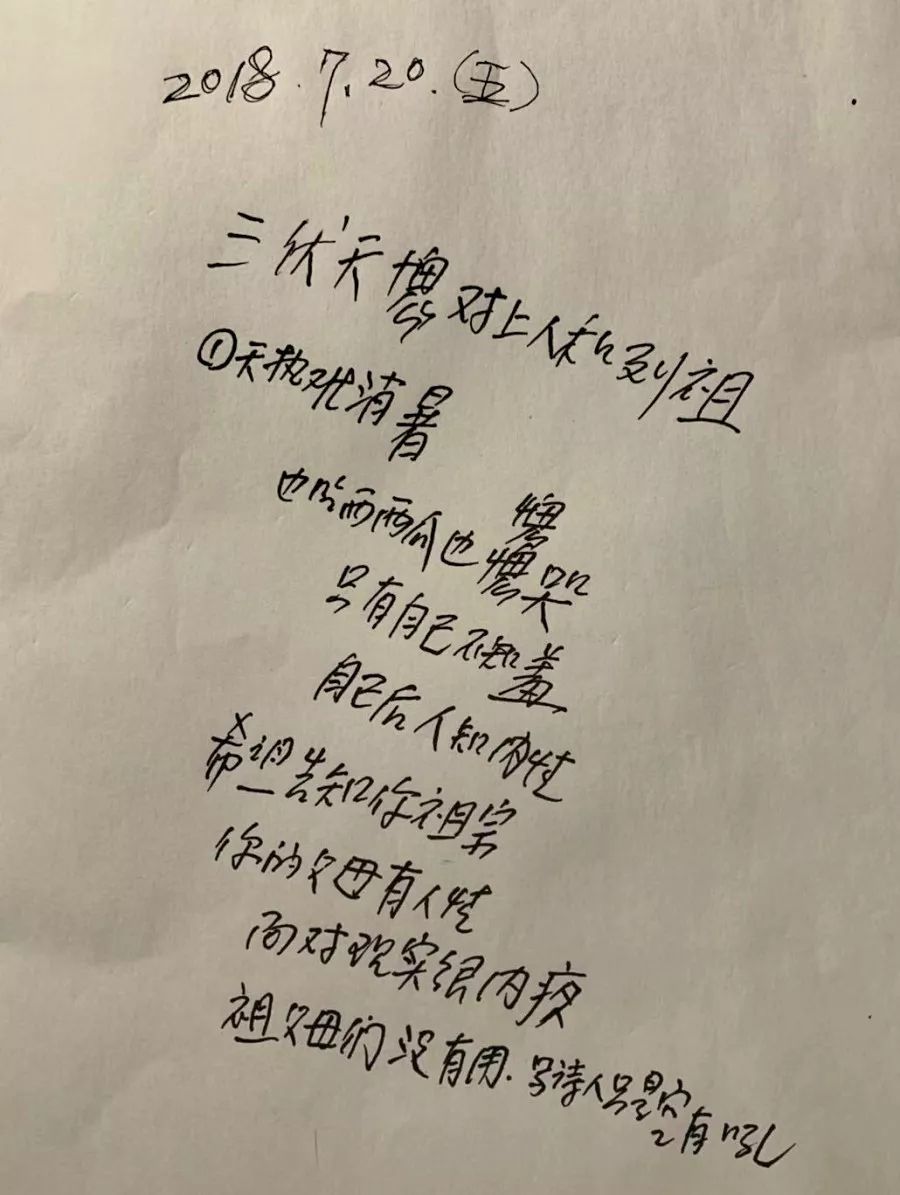 2018.7.20.(五)
三伏天 对上人和列祖
①天热难消暑
也吃西瓜也 哭
只有自己不知羞
自己后人知内性
希望告知你祖宗
你的父母有人性
面对现实很内疚
祖父母们没有用.写诗人只是空有吼